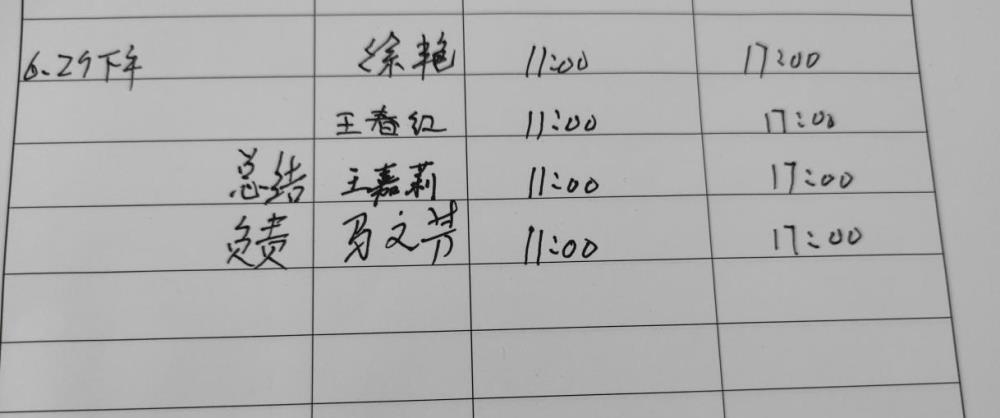 6.29下午 徐艳 11:00 17:00
王春红 11:00 17:00
总结 王嘉莉 11:00 17:00
负责 马文 11:00 17:00